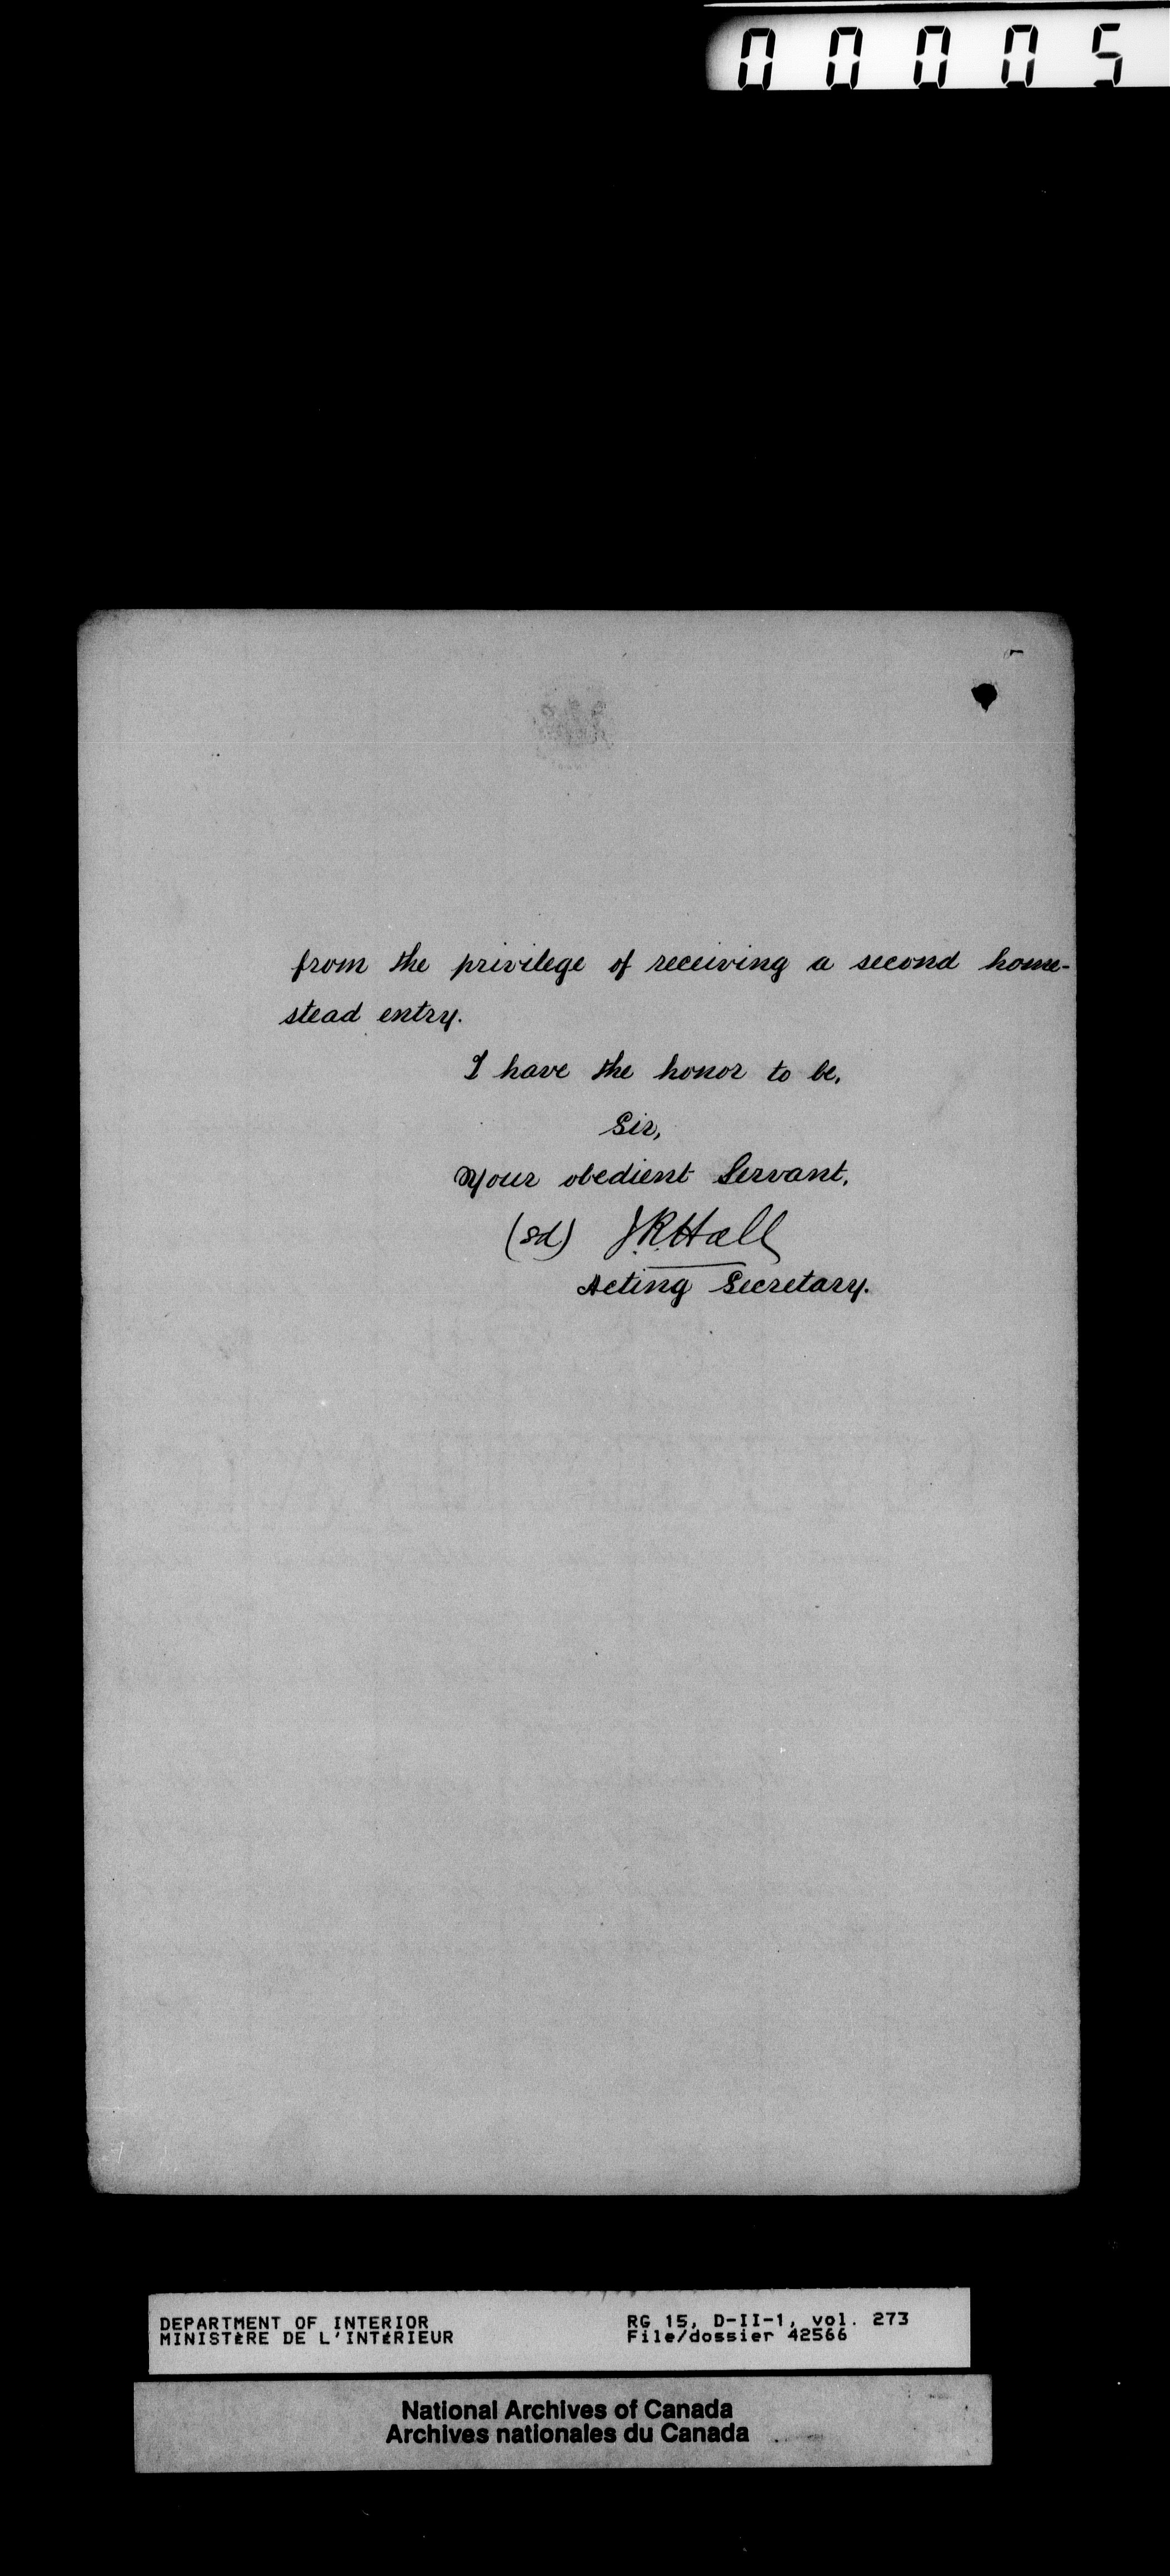 00005
from the privilege of receiving a second home-
stead entry.
I have the honor to be,
Sir,
Your obedient Servant,
(sd) J.R.Hall
Acting Secretary.
DEPARTMENT OF INTERIOR
MINISTÈRE DE L'INTÉRIEUR
RG 15, D-II-1, vol. 273
File/dossier 42566
National Archives of Canada
Archives nationales du Canada